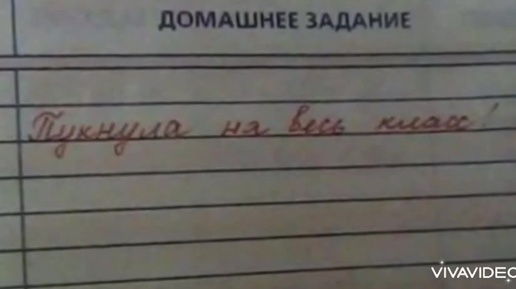 ДОМАШНЕЕ ЗАДАНИЕ
Пукнула на весь класс!
VIVAVIDEO